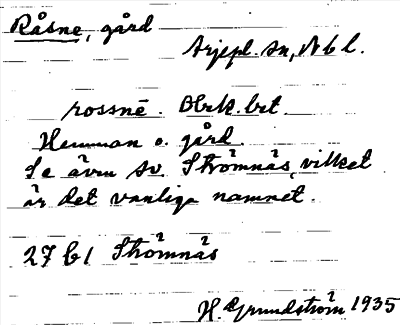 Råsne, gård
Arjepl. sn, Nbl.
rossnē. Obek. bet.
Hemman o. gård.
Se även sv. Strömnäs, vilket
är det vanliga namnet.
27 b1 Strömnäs
H. Grundström 1935